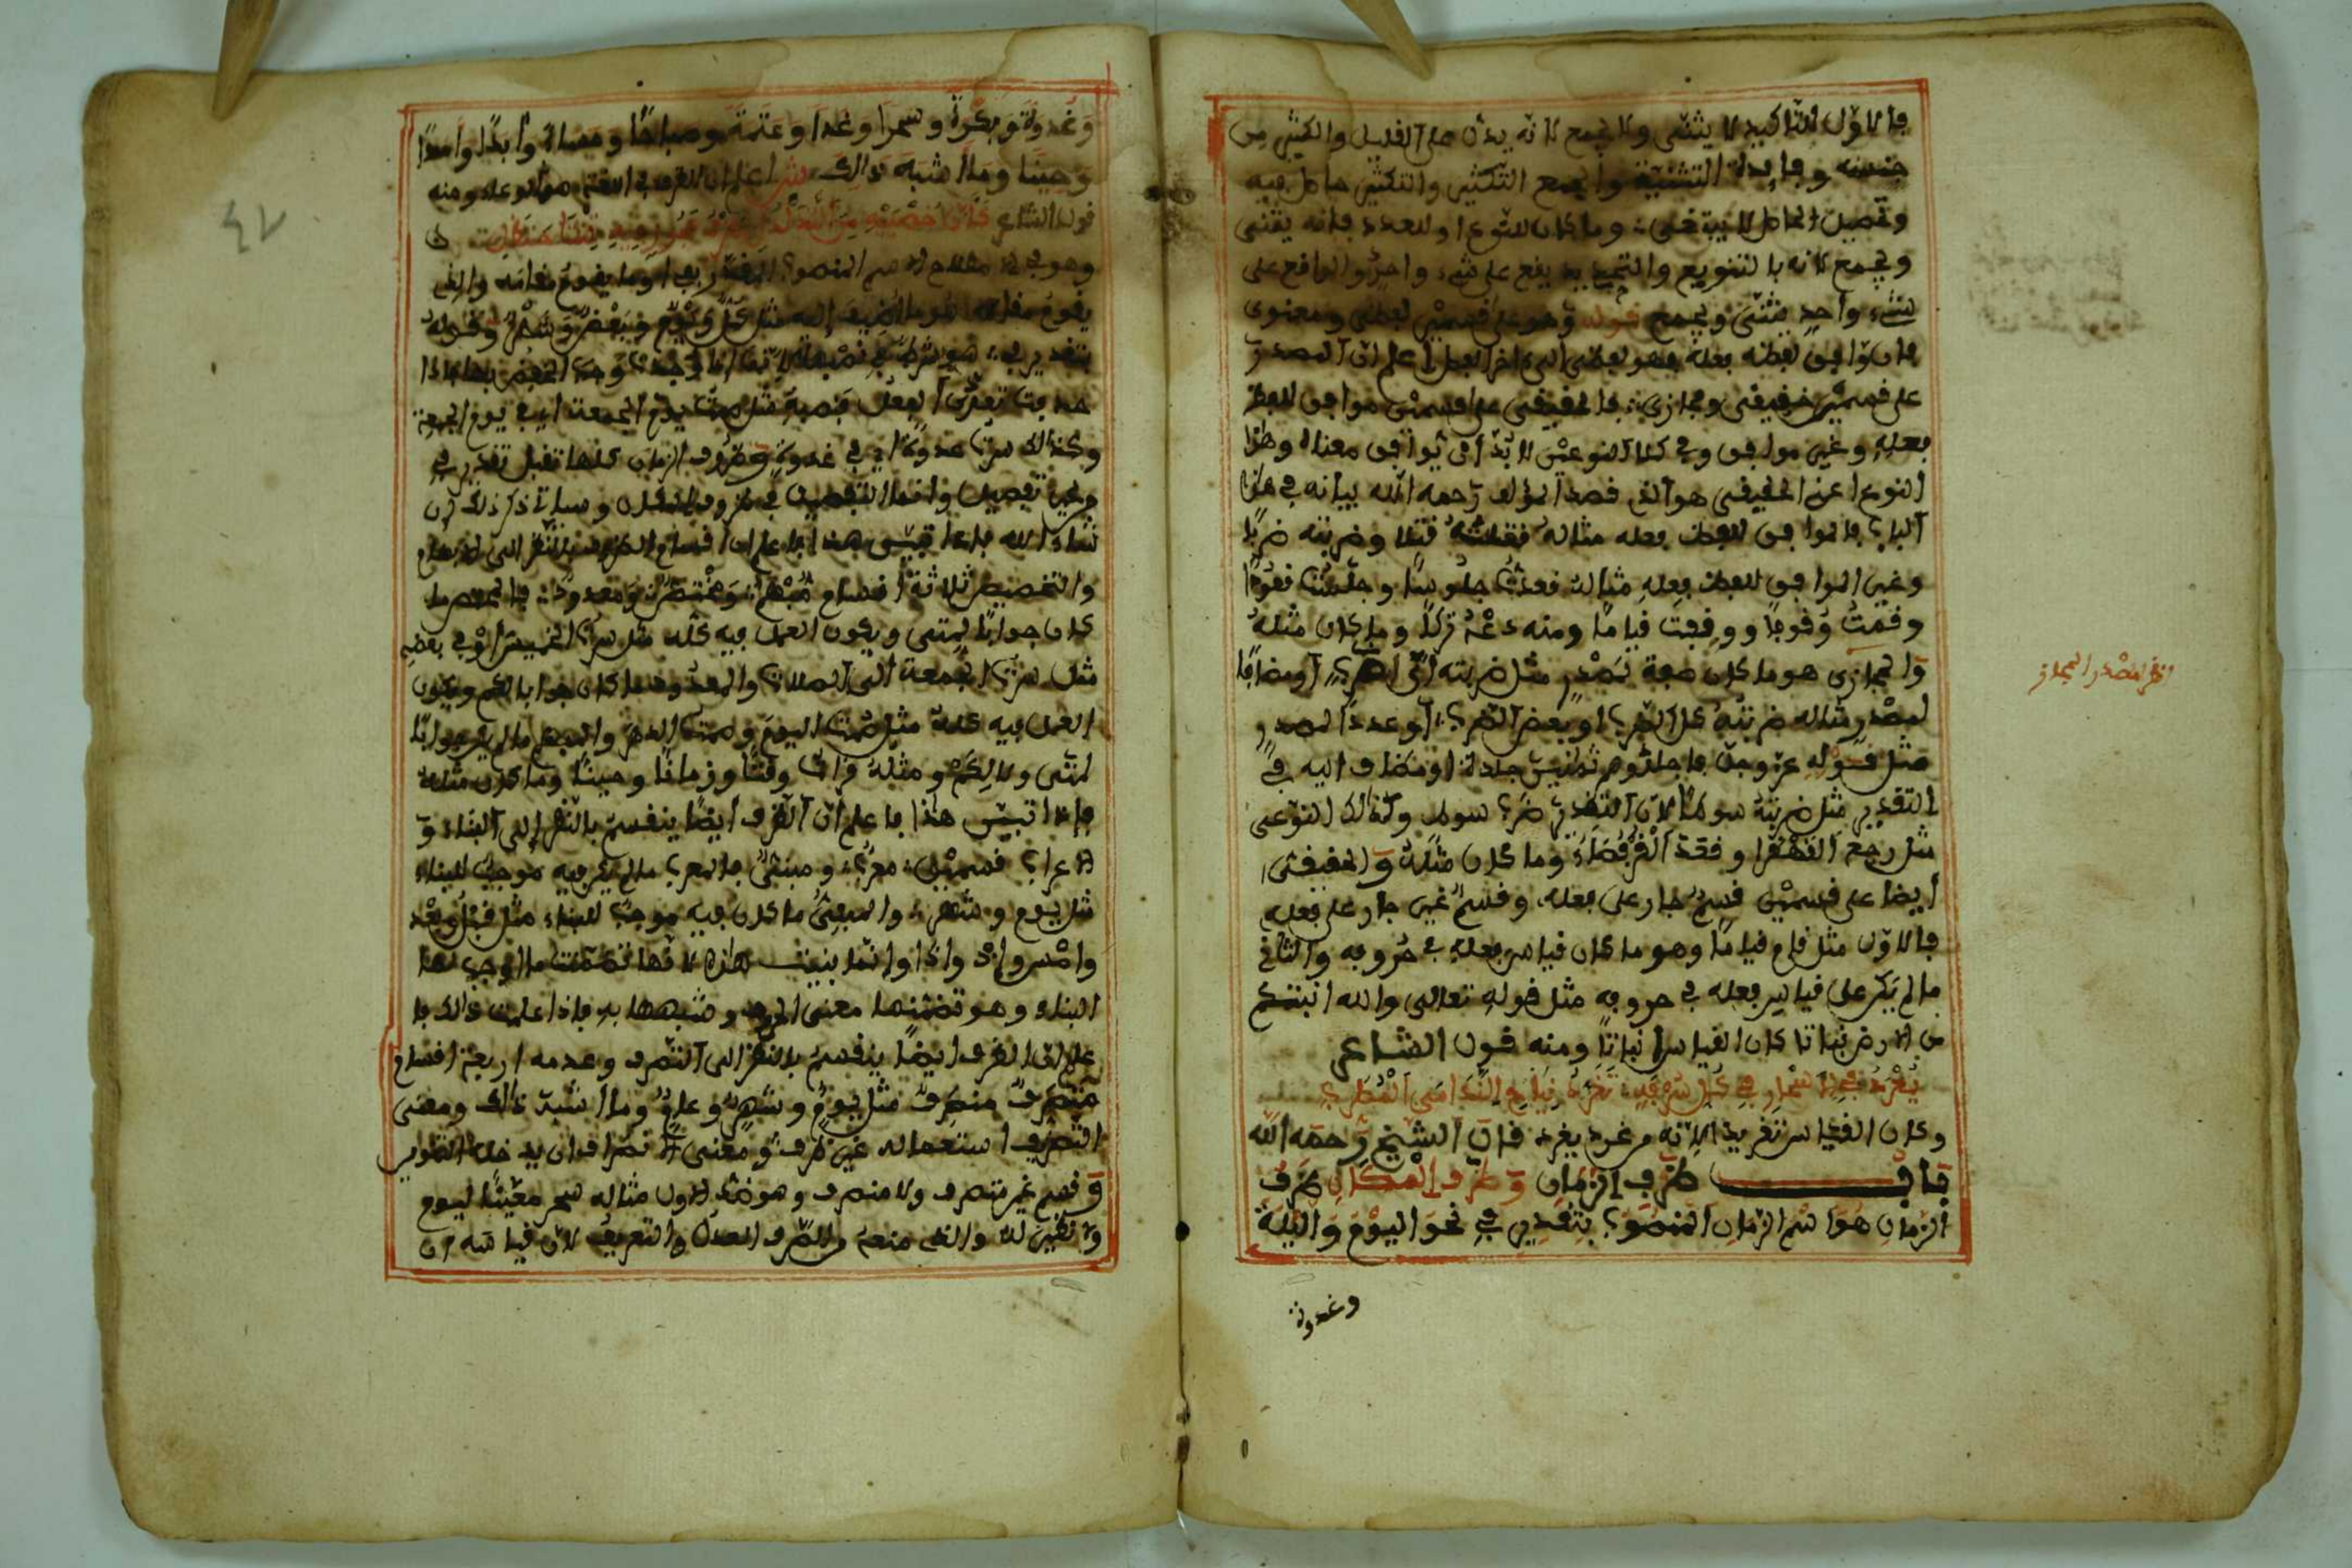 فالاول للتاكيد لا يثنى ولا يجمع لانه يدل على القليل والكثير من
جنسه وفايدة التثنية والجمع التكثير والتكثير حاصل فيه
وتحصيل الحاصل لا ينبغي وما كان للنوع او للعدد فانه يثنى
ويجمع لانه بالتنويع والتحديد يقع على شيء واحد والواقع على
شيء واحد يثنى ويجمع قوله وهو على قسمين لفظي ومعنوي
فان وافق لفظه فعله فهو لفظي الى اخر الفصل اعلم ان المصدر
على قسمين حقيقي ومجازي فالحقيقي على قسمين موافق للفظ
فعله وغير موافق وفي كلا النوعين لا بد ان يوافق معناه وهذا
النوع اعني الحقيقي هو الذي قصد المؤلف رحمه الله بيانه في هذا
الباب فالموافق للفظ فعله مثاله قتلته قتلا وضربته ضربا
وغير الموافق للفظ فعله مثاله قعدت جلوسا وجلست قعودا
وقمت وقوفا ووقفت قياما ومنه دعه تركا وما كان مثله
والمجازي هو ما كان صفة لمصدر مثل ضربته اي الضرب او مضافا
لمصدر مثاله ضربته كل الضرب او بعض الضرب او عددا لمصدر
مثل قوله عز وجل فاجلدوهم ثمانين جلدة او مضاف اليه في
التقدير مثل ضربته سوطا لان التقدير ضرب سوط وكذالك النوعي
مثل رجع القهقرا وقعد القرفصاء وما كان مثله والحقيقي
ايضا على قسمين قسم جار على فعله وقسم غير جار على فعله
فالاول مثل قام قياما وهو ما كان قياس فعله في حروفه والثاني
ما لم يكن على قياس فعله في حروفه مثل قوله تعالى والله انبتكم
من الارض نباتا كان القياس انباتا ومنه قول الشاعر
يغرد بالاسحار في كل سرفة تغرد النداما المطرب
وكان القياس تغريدا لانه من غرد يغرد قال الشيخ رحمه الله
باب ظرف الزمان وظرف المكان ظرف
الزمان هو اسم الزمان المنصوب بتقدير في نحو اليوم والليلة
وغدوة
انظر المصدر المجاز
وغدوة وبكرة وسحرا وغدا وعتمة وصباحا ومساء وابدا وامدا
وحينا وما اشبه ذالك ش اعلم ان الظرف في اللغة هو الوعاء ومنه
قول الشاعر كان خصييه من التدلدل ظرف عجوز فيه ثنتا حنظل
وهو في الاصطلاح الاسم المنصوب المقدر بفي او ما يقوم مقامه والذي
يقوم مقامه هو ما اضيف اليه مثل كل يوم وبعض شهر وقوله
بتقدير في هو شرط في نصبه
حذفت تعدى الفعل فنصبه مثل صمت يوم الجمعة اي في يوم الجمعة
وكذالك سرت غدوة اي في غدوة وظروف الزمان كلها تقبل تقدير في
من غير تفصيل وانما التفصيل في ظروف المكان وسياتي ذكر ذلك ان
شاء الله فاذا تبين هذا فاعلم ان اقسام الظرف بالنظر الى الابهام
والتخصيص ثلاثة اقسام مبهم ومختص ومعدود فالمختص ما
كان جوابا لمتى ويكون العمل فيه كله مثل سرت الخميس او في بعضه
مثل سرت الجمعة الى الصلاة والمعدود ما كان جوابا لكم ويكون
العمل فيه كله مثل صمت اليوم وصمت الشهر والمبهم ما لم يكن جوابا
لمتى ولا لكم ومثله وقتا وزمانا وحينا وما كان مثله
فاذا تبين هذا فاعلم ان الظرف ايضا ينقسم بالنظر الى البناء و
الاعراب قسمين معرب ومبني فالمعرب ما لم يكن فيه موجب للبناء
مثل يوم وشهر والمبني ما كان فيه موجب للبناء مثل قبل وبعد
وامس واذ واذا وانما بنيت هاذه لانها تضمنت ما اوجب لها
البناء وهو تضمنها معنى الحرف وشبهها به فاذا علمت ذالك فا
علم ان الظرف ايضا ينقسم بالنظر الى التصرف وعدمه اربعة اقسام
متصرف منصرف مثل يوم وشهر وعام وما اشبه ذالك ومعنى
التصرف استعماله غير ظرف ومعنى الانصراف ان يدخله التنوين
وقسم غير متصرف ولا منصرف وهو ضد الاول مثاله سحر معينا ليوم
والذي منعه الصرف العدل والتعريف لان قياسه ان